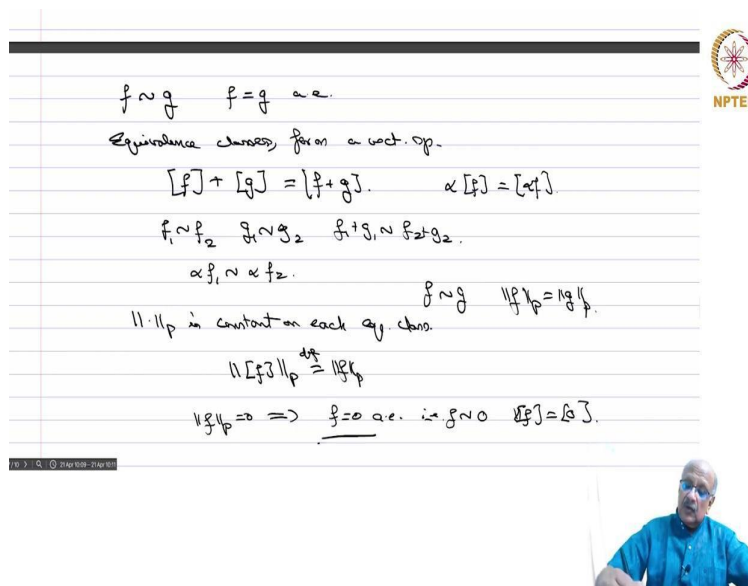 NPTE
f ~ g f = g a.e.
Equivalence classes, form a vect. sp.
[f] + [g] = [f+g]. α[f] = [αf].
f₁ ~ f₂ g₁ ~ g₂ f₁+g₁ ~ f₂+g₂.
αf₁ ~ αf₂.
f ~ g ‖f‖ₚ = ‖g‖ₚ.
‖·‖ₚ is constant on each eq. class.
‖[f]‖ₚ def= ‖f‖ₚ
‖f‖ₚ=0 => f=0 a.e. i.e. f~0 [f]=[0].
21 Apr 10:09 - 21 Apr 10:11